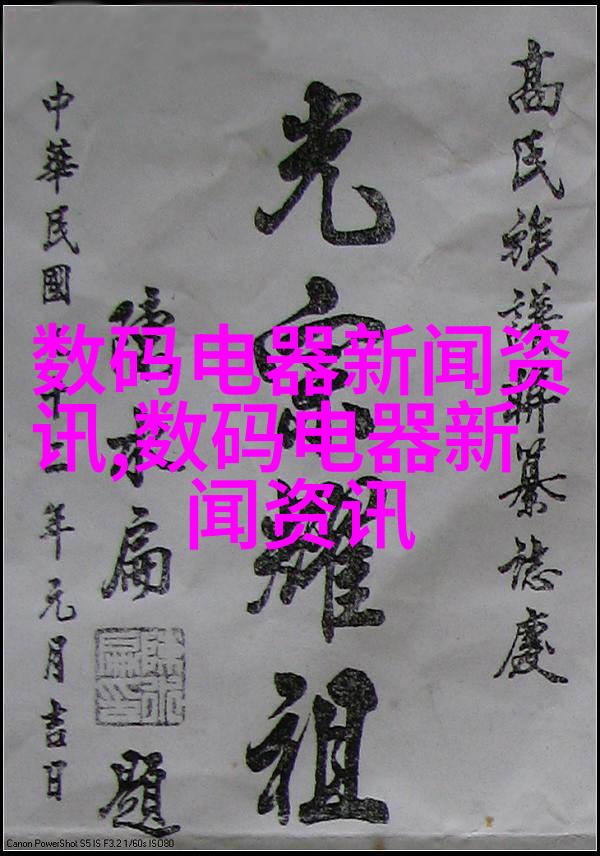 高氏族譜纂誌慶
光宗耀祖
陳水扁
題
陳水扁印
中華民國十二年元月吉日
数码电器新闻资
讯,数码电器新
闻资讯
Canon PowerShot S5 IS F3.2 1/60s ISO80